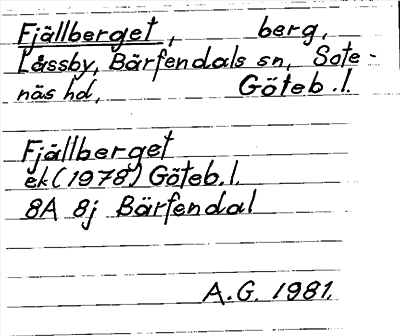 Fjällberget, berg,
Låssby, Bärfendals sn, Sote-
näs hd, Göteb.l.
Fjällberget
ek (1978) Göteb.l.
8A 8j Bärfendal
A.G. 1981.